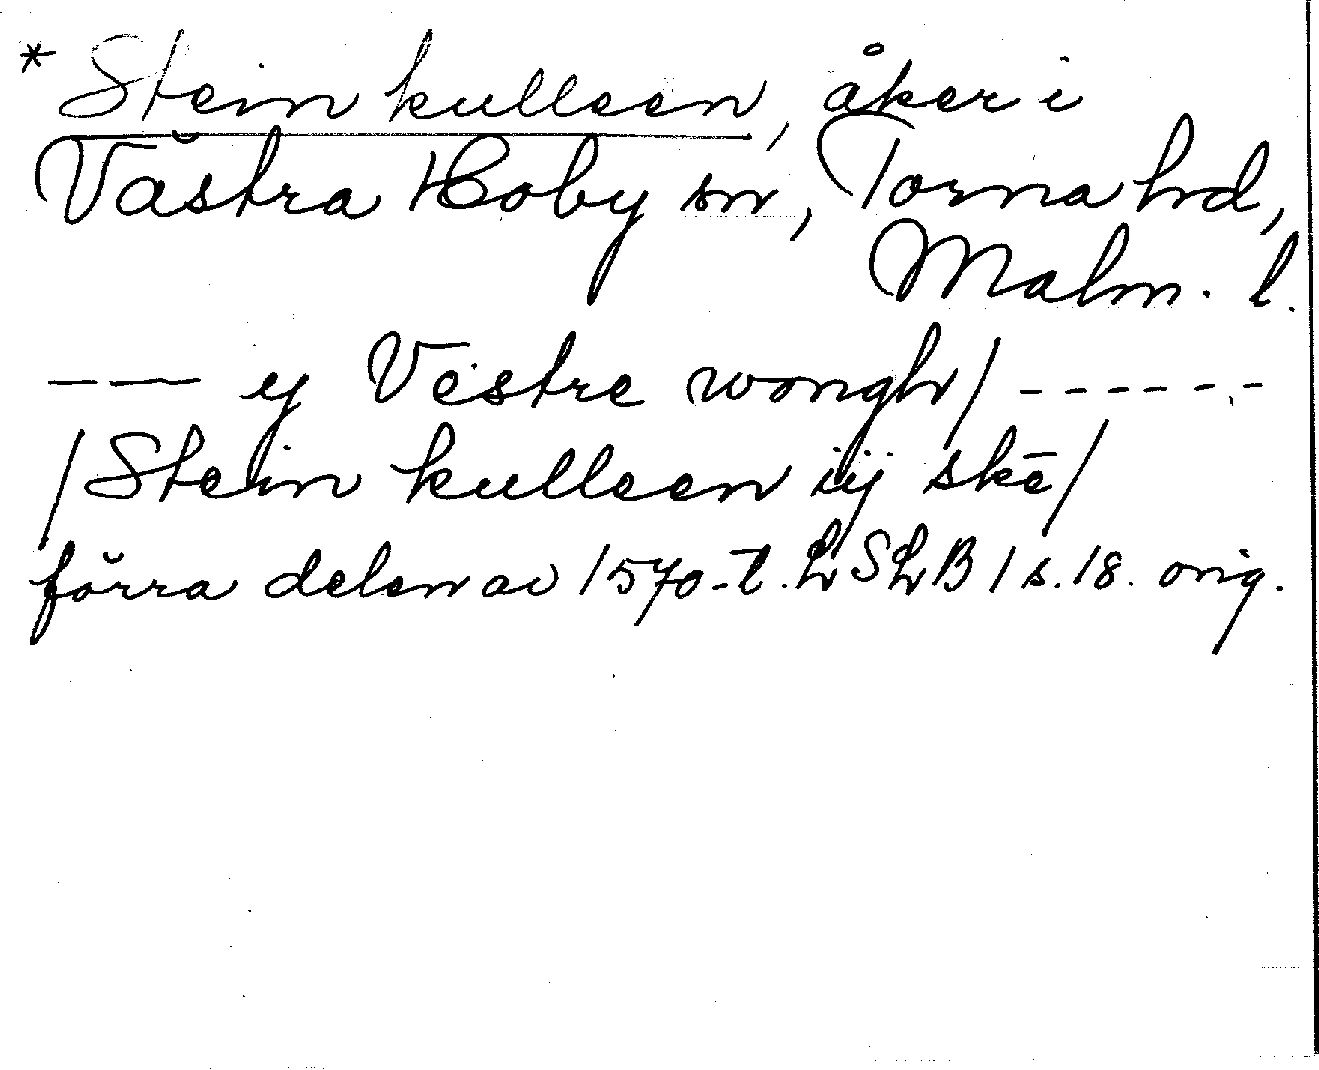 * Stein kulleen, åker i
Västra Hoby sn, Torna hd,
Malm. l.
— — y Vestre wongh/ - - - - - -
/Stein kulleen iij skē/
förra delen av 1570-t. LSLB 1 s. 18. orig.